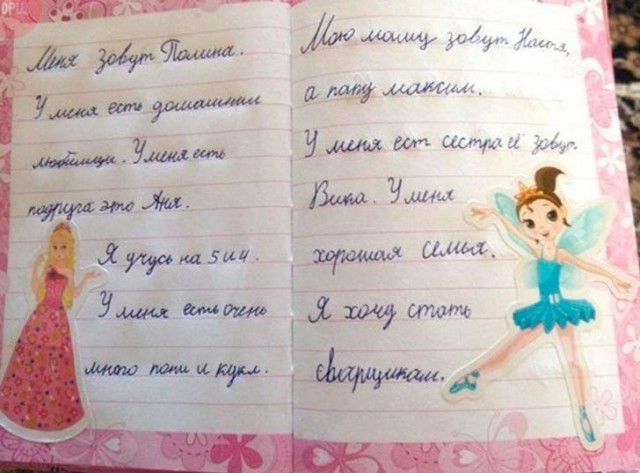 Меня зовут Полина.
У меня есть домашнии
любимци. У меня есть
подруга это Аня.
Я учусь на 5 и 4.
У меня есть очень
много пони и кукл.
Мою маму зовут Настя,
а папу максим.
У меня ест сестра её зовут
Вика. У меня
хорошая семья.
Я хочу стать
сварщиком.